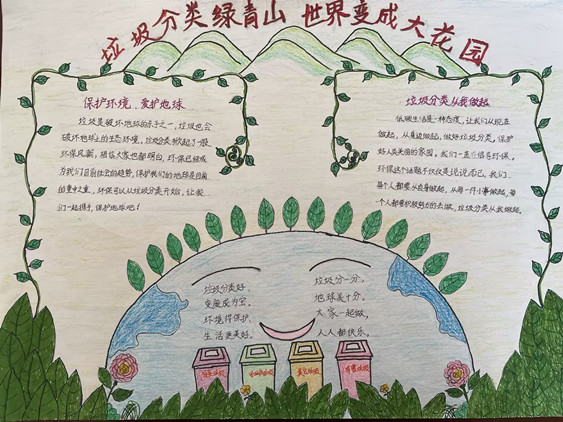 垃圾分类绿青山 世界变成大花园
保护环境、爱护地球
垃圾是破坏地球的杀手之一,垃圾也会
破坏地球上的生态环境,垃圾分类掀起了一股
环保风潮,相信大家也都明白,环保已经成
为我们目前社会的趋势,保护我们的地球是目前
的重中之重,环保可以从垃圾分类开始,让我
们一起携手,保护地球吧!
垃圾分类从我做起
低碳生活是一种态度,让我们从现在
做起,从身边做起,做好垃圾分类,保护
好人类美国的家园,我们一直在倡导环保,
环保这个话题不仅仅是说说而已,我们
每个人都要从自身做起,从每一件小事做起,每
个人都要积极努力的去做,垃圾分类从我做起。
垃圾分类好,
变废成为宝。
环境得保护,
生活更美好。
垃圾分一分,
地球美十分。
大家一起做,
人人都快乐。
有害垃圾